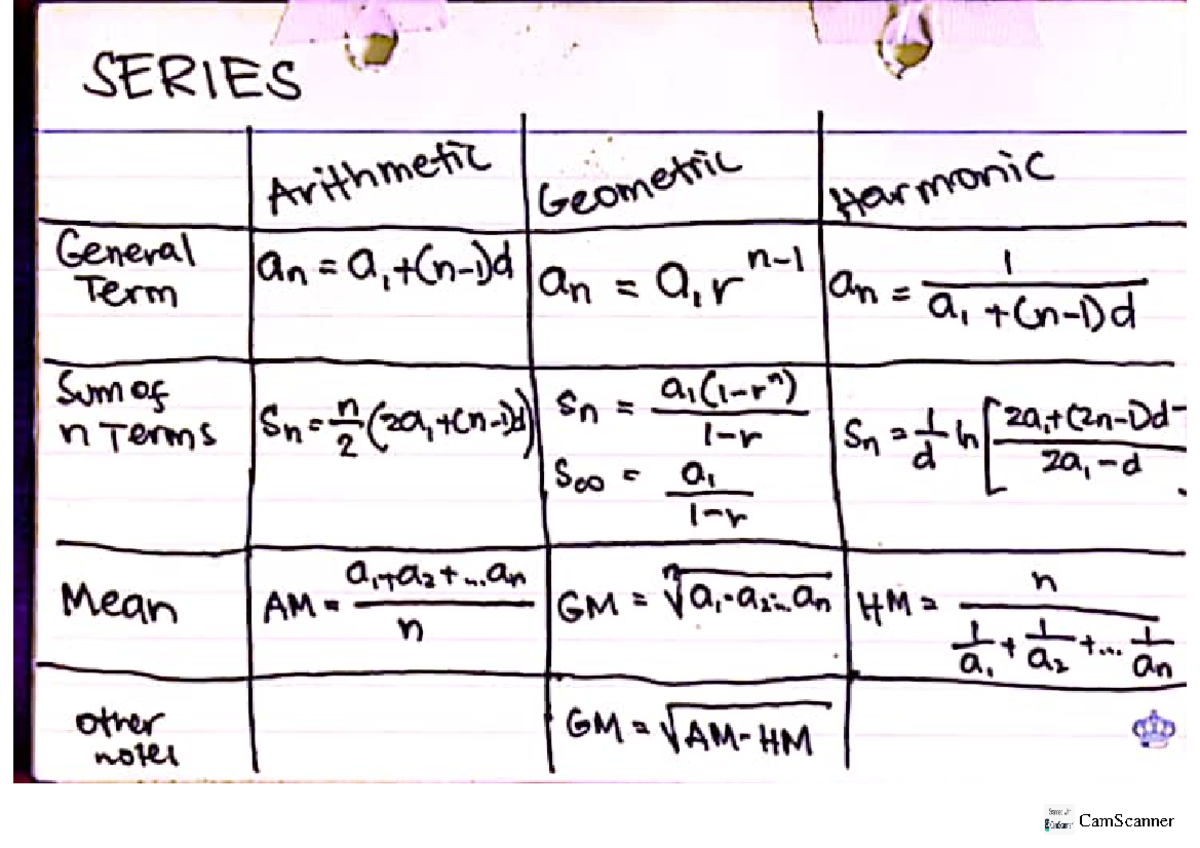 SERIES
Arithmetic Geometric Harmonic
General Term aₙ = a₁+(n-1)d aₙ = a₁rⁿ⁻¹ aₙ = 1/(a₁+(n-1)d)
Sum of n Terms Sₙ = n/2 (2a₁+(n-1)d) Sₙ = a₁(1-rⁿ)/(1-r) Sₙ = 1/d ln[(2a₁+(2n-1)d)/(2a₁-d)]
S∞ = a₁/(1-r)
Mean AM = (a₁+a₂+...aₙ)/n GM = ⁿ√(a₁·a₂...aₙ) HM = n/(1/a₁+1/a₂+...1/aₙ)
other notes GM = √(AM·HM)
CamScanner